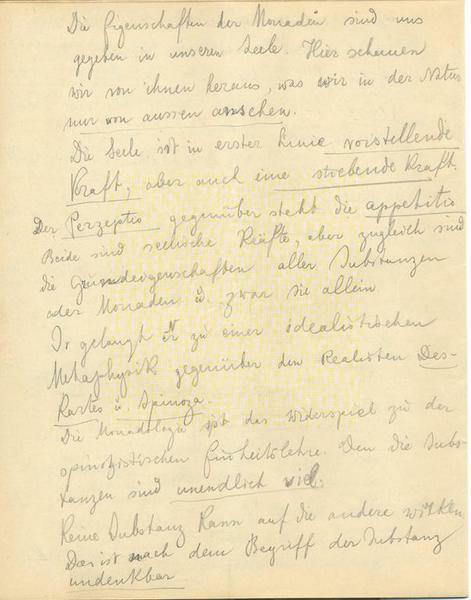 Die Eigenschaften der Monaden sind uns
gegeben in unseren Seele. Hier schauen
wir von ihnen heraus, was wir in der Natur
nur von aussen ansehen.
Die Seele ist in erster Linie vorstellende
Kraft, aber auch eine strebende Kraft.
Der Perzeptio gegenüber steht die appetitio
Beide sind seelische Kräfte, aber zugleich sind
die Grundeigenschaften aller Substanzen
oder Monaden u. zwar sie allein
So gelangt er zu einer idealistischen
Metaphysik gegenüber den Realisten Des-
Kartes u. Spinoza.
Die Monadologie ist das Widerspiel zu der
spinozistischen Einheitslehre. Den die Subs-
tanzen sind unendlich viel.
Keine Substanz kann auf die andere wirken
Das ist nach dem Begriff der Substanz
undenkbar